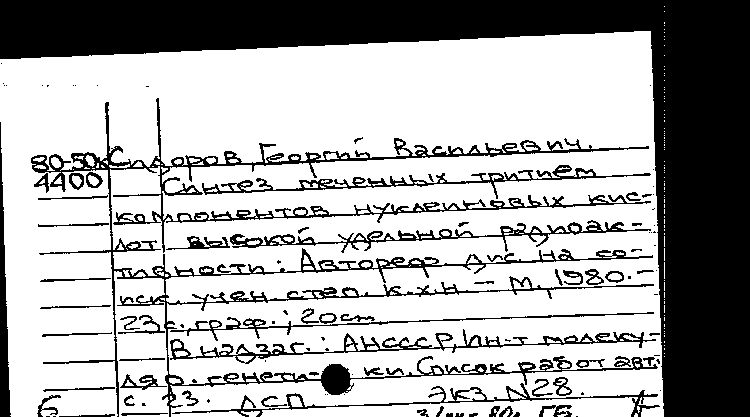 80-50к Сидоров, Георгий Васильевич.
4400 Синтез меченных тритием
компонентов нуклеиновых кис-
лот высокой удельной радиоак-
тивности: Автореф. дис. на со-
иск. учен. степ. к.х.н. - М., 1980. -
23 с., граф.; 20 см
В надзаг.: АН СССР, Ин-т молеку-
ляр. генети- ки. Список работ авт.:
с. 23. ДСП. Экз. N28.
Б 80г.